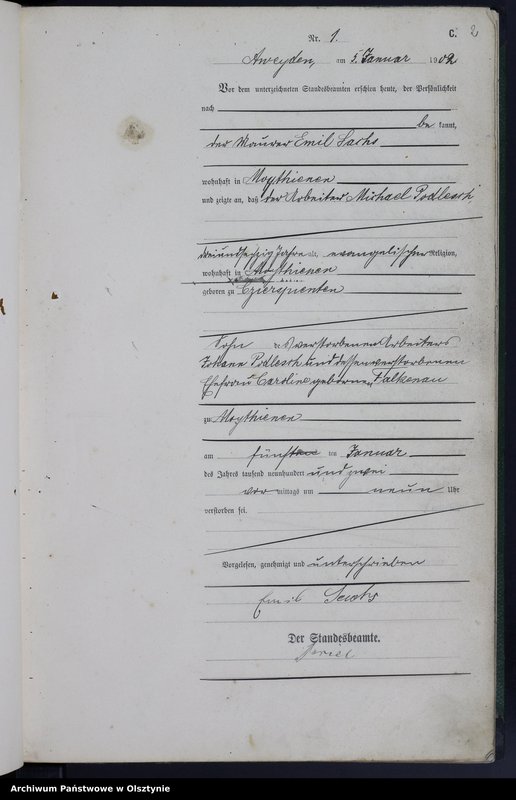 Nr. 1.
C. 2
Aweyden, am 5. Januar 1902
Vor dem unterzeichneten Standesbeamten erschien heute, der Persönlichkeit
nach
be kannt,
der Maurer Emil Sachs
wohnhaft in Moythienen
und zeigte an, daß der Arbeiter Michael Podlesch,
dreiundsechzig Jahre alt, evangelischer Religion,
wohnhaft in Moythienen
geboren zu Czierspienten
Sohn des verstorbenen Arbeiters
Johann Podlesch und dessen verstorbenen
Ehefrau Caroline geborenen Falkenau
zu Moythienen
am fünften ten Januar
des Jahres tausend neunhundert und zwei
vor mittags um neun Uhr
verstorben sei.
Vorgelesen, genehmigt und unterschrieben
Emil Sachs
Der Standesbeamte.
Archiwum Państwowe w Olsztynie